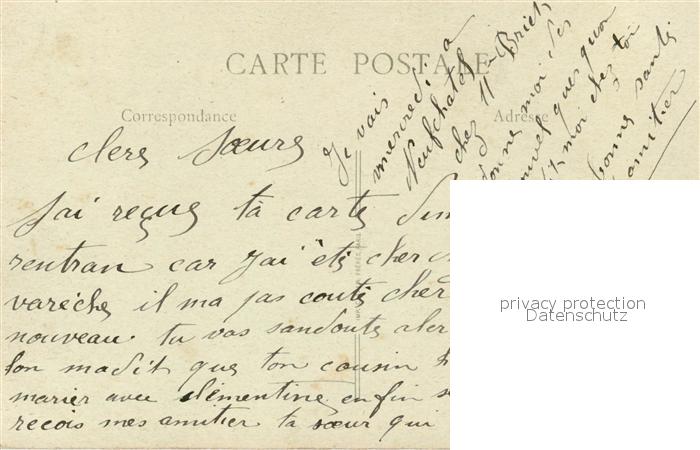 CARTE POSTALE
Correspondance
Adresse
chere sœure
J'ai reçue ta carte dim
rentran car j'ai été cher
varéche il ma pas couté cher
nouveau tu vas sandoute aler
lon madit que ton cousin
marier avec clementine enfin
recois mes amitier ta sœur qui
Je vais
mercredi a
Neufchatel
chez Mr Briet
donne moi des
nouvel quesquon
dit moi chez toi
bonne santé
amitier
privacy protection
Datenschutz